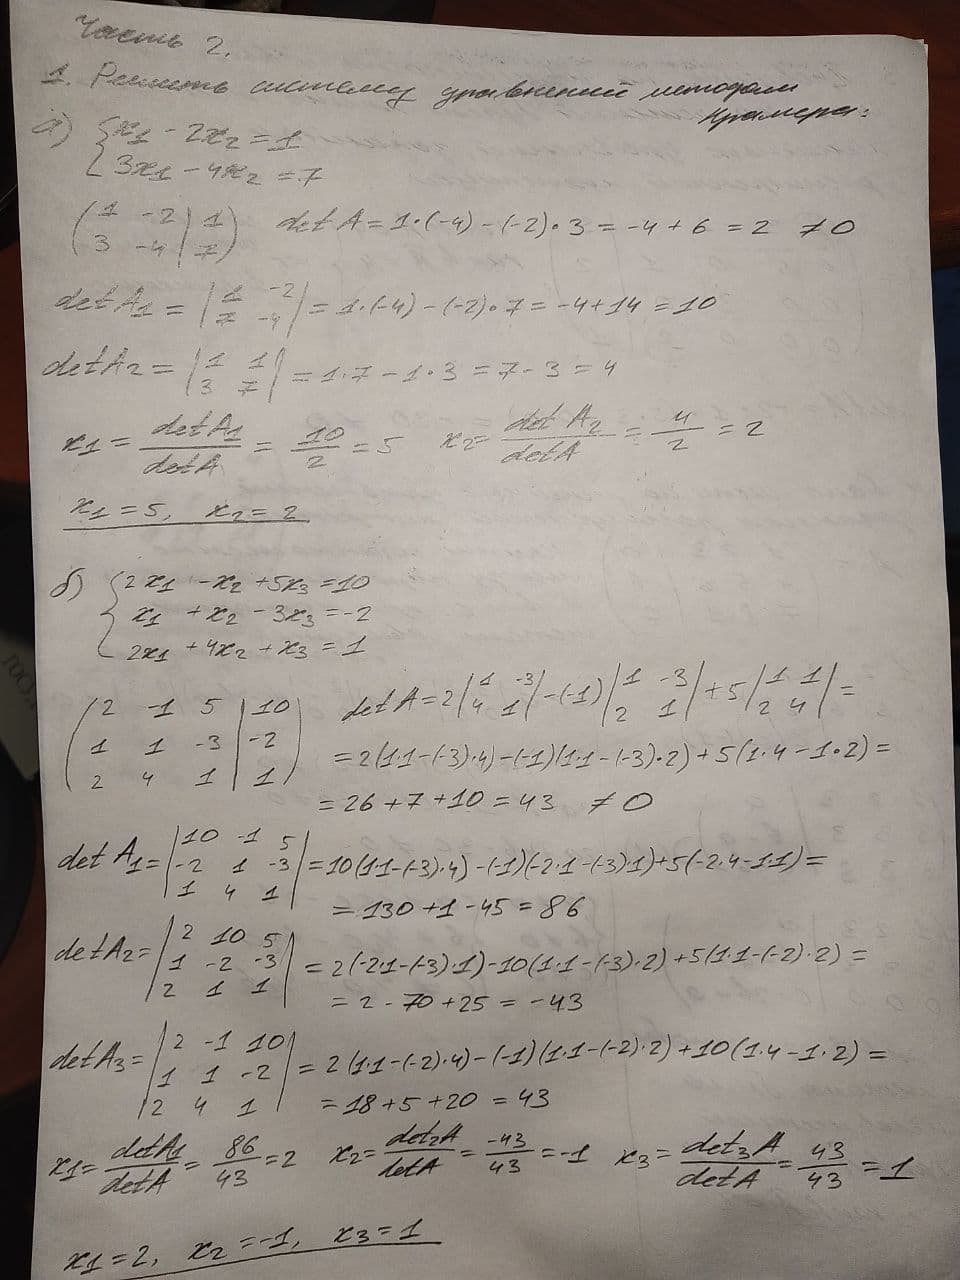 Часть 2.
1. Решить систему уравнений методом
Крамера:
а) { x₁ - 2x₂ = 1
3x₁ - 4x₂ = 7
(1 -2 | 1
3 -4 | 7) det A = 1·(-4) - (-2)·3 = -4 + 6 = 2 ≠ 0
det A₁ = |1 -2
7 -4| = 1·(-4) - (-2)·7 = -4 + 14 = 10
det A₂ = |1 1
3 7| = 1·7 - 1·3 = 7 - 3 = 4
x₁ = det A₁ / det A = 10/2 = 5 x₂ = det A₂ / det A = 4/2 = 2
x₁ = 5, x₂ = 2
б) { 2x₁ - x₂ + 5x₃ = 10
x₁ + x₂ - 3x₃ = -2
2x₁ + 4x₂ + x₃ = 1
(2 -1 5 | 10
1 1 -3 | -2
2 4 1 | 1)
det A = 2|1 -3
4 1| - (-1)|1 -3
2 1| + 5|1 1
2 4| =
= 2(1·1 - (-3)·4) - (-1)(1·1 - (-3)·2) + 5(1·4 - 1·2) =
= 26 + 7 + 10 = 43 ≠ 0
det A₁ = |10 -1 5
-2 1 -3
1 4 1| = 10(1·1 - (-3)·4) - (-1)(-2·1 - (-3)·1) + 5(-2·4 - 1·1) =
= 130 + 1 - 45 = 86
det A₂ = |2 10 5
1 -2 -3
2 1 1| = 2(-2·1 - (-3)·1) - 10(1·1 - (-3)·2) + 5(1·1 - (-2)·2) =
= 2 - 70 + 25 = -43
det A₃ = |2 -1 10
1 1 -2
2 4 1| = 2(1·1 - (-2)·4) - (-1)(1·1 - (-2)·2) + 10(1·4 - 1·2) =
= 18 + 5 + 20 = 43
x₁ = det A₁ / det A = 86/43 = 2 x₂ = det₂A / det A = -43/43 = -1 x₃ = det₃A / det A = 43/43 = 1
x₁ = 2, x₂ = -1, x₃ = 1